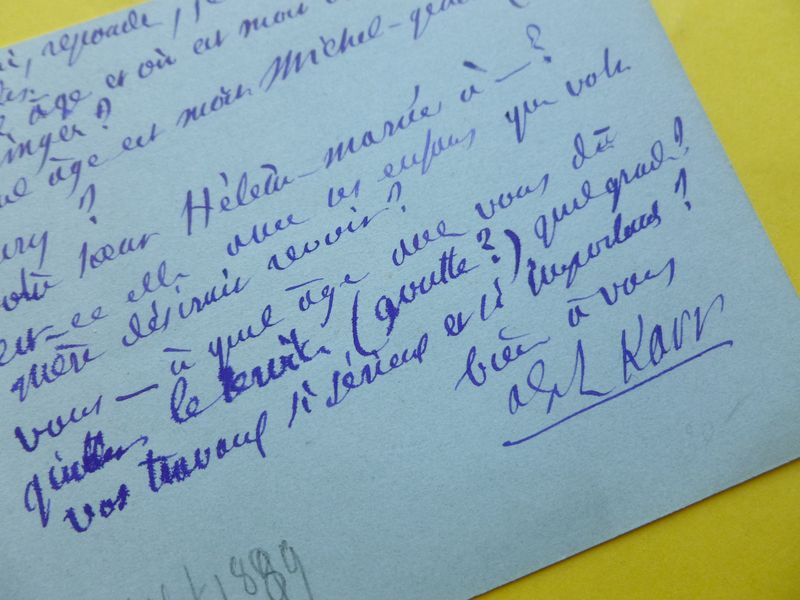 , reponde, je
âge et où est mon
inger?
âge est mon Michel-
ury?
sœur Hélène - mariée à —?
est-ce elle avec ses enfans que votre
mère désirait revoir?
vous — à quel âge avez vous dû
quitter le service (goutte?) quel grade?
vos travaux si sérieux et si importans?
bien à vous
alph Karr
1889